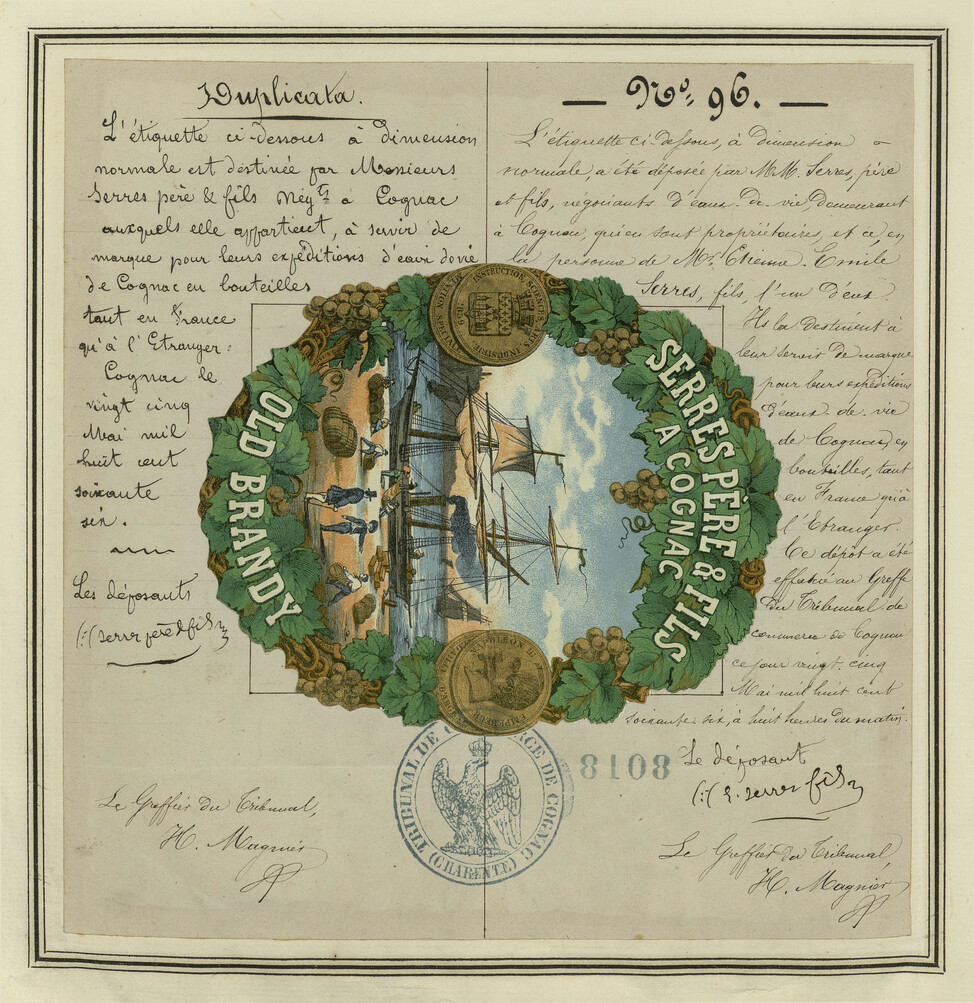 Duplicata.
L'étiquette ci-dessous à dimension
normale est destinée par Messieurs
Serres père & fils Nég.ts à Cognac
auxquels elle appartient, à servir de
marque pour leurs expéditions d'eaux de vie
de Cognac en bouteilles
tant en France
qu'à l'Etranger:
Cognac le
vingt cinq
Mai mil
huit cent
soixante
six.
Les déposants
(:( Serres père & fils
Le Greffier du Tribunal,
H. Magnier
— No. 96. —
L'étiquette ci-dessous, à dimension
normale, a été déposée par M.M. Serres, père
et fils, négociants d'eaux-de-vie, demeurant
à Cognac, qui en sont propriétaires, et ce en
la personne de Mr. Etienne-Emile
Serres, fils, l'un d'eux.
Ils la destinent à
leur servir de marque
pour leurs expéditions
d'eaux-de-vie
de Cognac, en
bouteilles, tant
en France qu'à
l'Etranger.
Ce dépôt a été
effectué au Greffe
du Tribunal de
commerce de Cognac
ce jour vingt-cinq
Mai mil huit cent
soixante-six, à huit heures du matin.
Le déposant
(:( E. Serres fils
Le Greffier du Tribunal,
H. Magnier
OLD BRANDY
SERRES PÈRE & FILS
A COGNAC
INSTRUCTION SCIENCES
ARTS INDUSTRIE
EMPEREUR
TRIBUNAL DE COMMERCE DE COGNAC
(CHARENTE)
8108